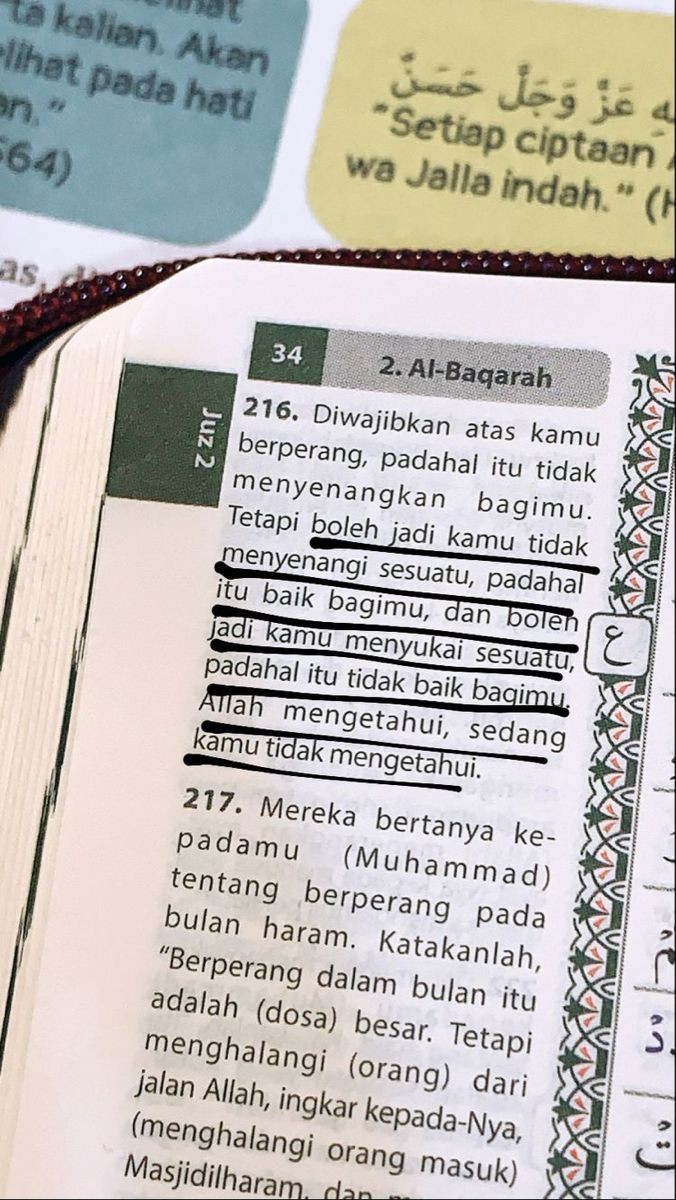 ta kalian. Akan
lihat pada hati
an."
564)
عَزَّ وَجَلَّ حَسَنٌ
"Setiap ciptaan
wa Jalla indah." (H
as,
34
2. Al-Baqarah
Juz 2
216. Diwajibkan atas kamu
berperang, padahal itu tidak
menyenangkan bagimu.
Tetapi boleh jadi kamu tidak
menyenangi sesuatu, padahal
itu baik bagimu, dan boleh
jadi kamu menyukai sesuatu,
padahal itu tidak baik bagimu.
Allah mengetahui, sedang
kamu tidak mengetahui.
ع
217. Mereka bertanya ke-
padamu (Muhammad)
tentang berperang pada
bulan haram. Katakanlah,
“Berperang dalam bulan itu
adalah (dosa) besar. Tetapi
menghalangi (orang) dari
jalan Allah, ingkar kepada-Nya,
(menghalangi orang masuk)
Masjidilharam, dan